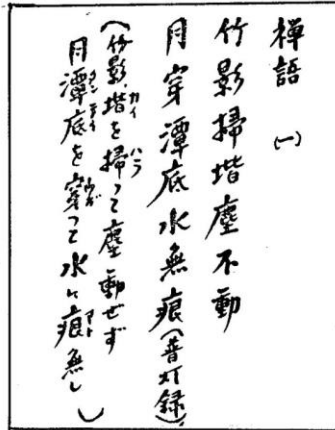 禅語 (一)
竹影掃堦塵不動
月穿潭底水無痕(普灯録)
(竹影堦を掃って塵動ぜず
月潭底を穿って水に痕無し)